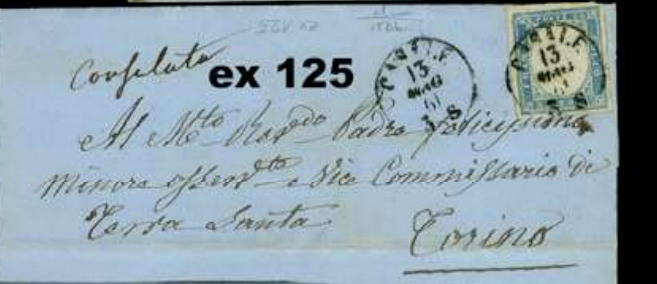 ex 125
CASALE
13
MAG
61
3 S
CASALE
13
MAG
61
3 S
Al M.to Rev.do Padre
Minore Osserv.te e Vice Commissario di
Terra Santa
Torino